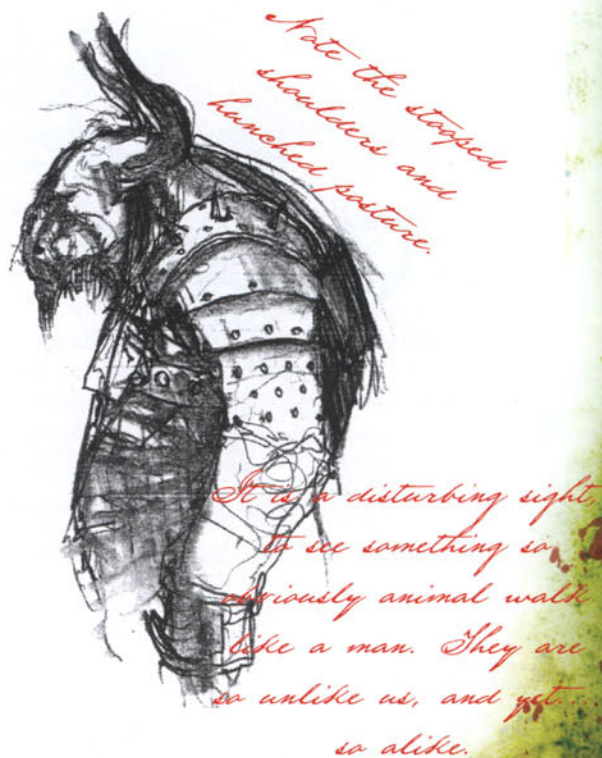 Note the stooped
shoulders and
hunched posture.
It is a disturbing sight,
to see something so
obviously animal walk
like a man. They are
so unlike us, and yet...
so alike.